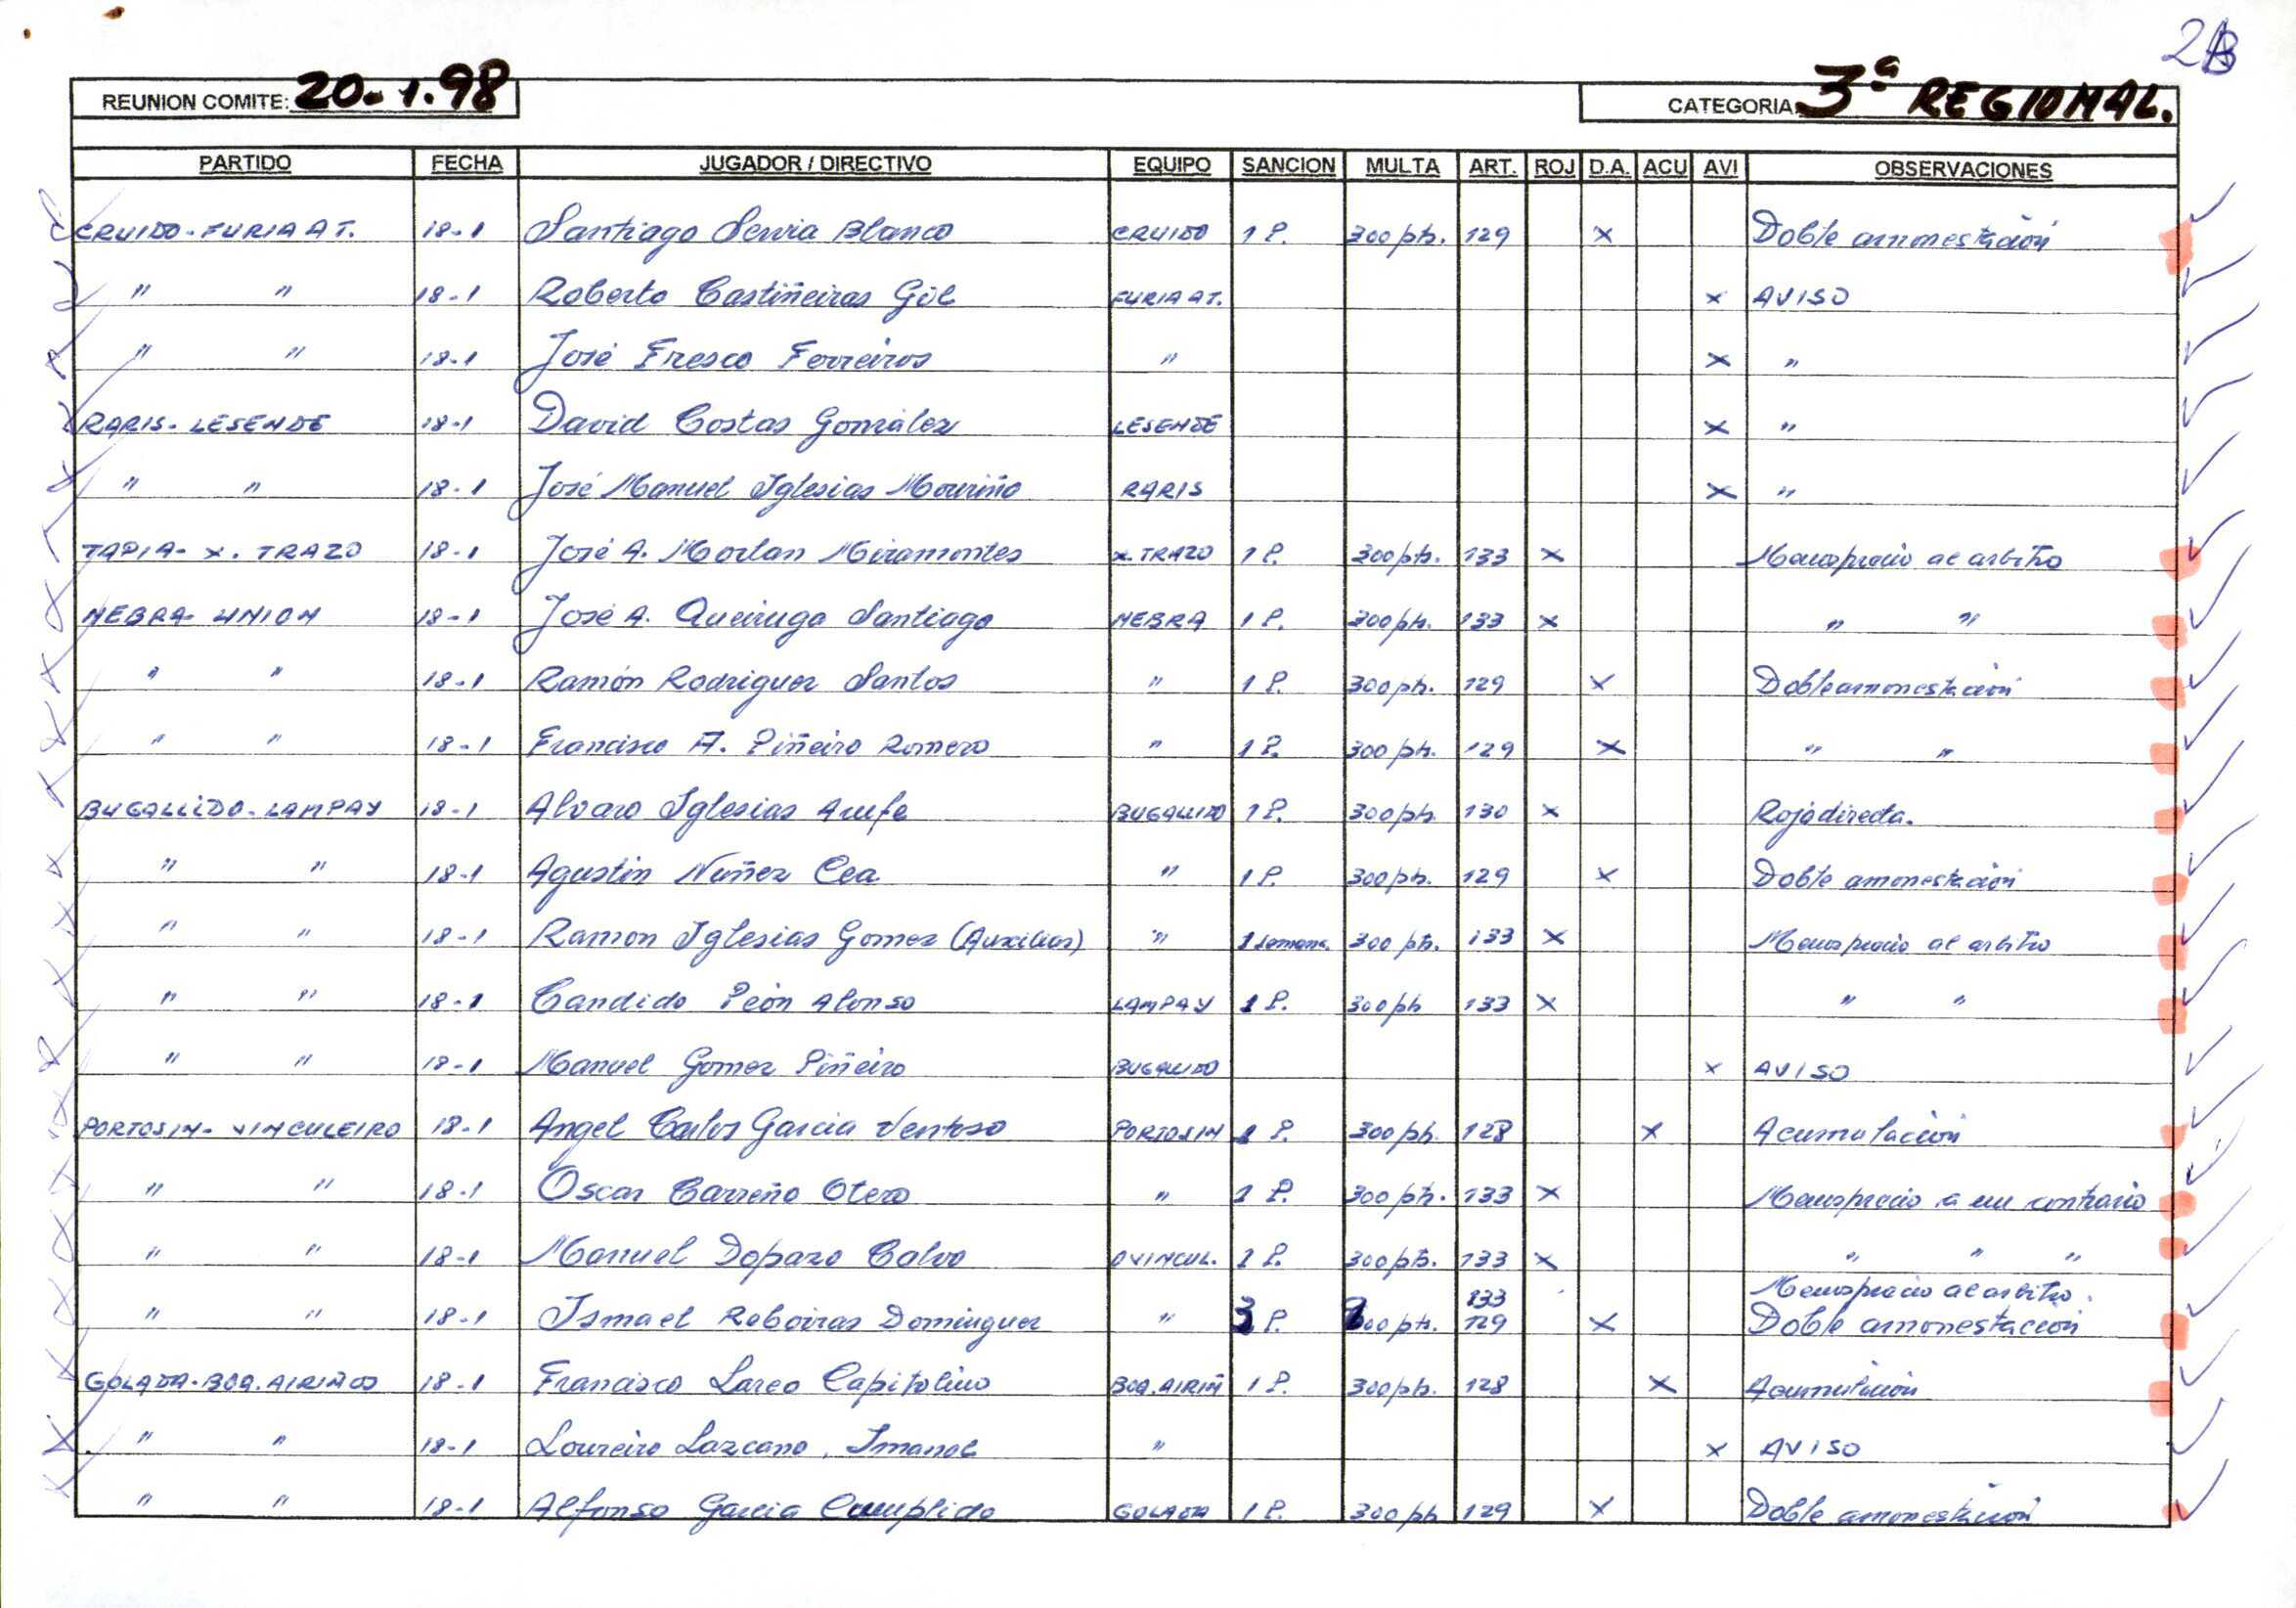 2B
REUNION COMITE: 20-1.98
CATEGORIA 3ª REGIONAL.
PARTIDO FECHA JUGADOR / DIRECTIVO EQUIPO SANCION MULTA ART. ROJ D.A. ACU AVI OBSERVACIONES
CRUIDO-FURIA AT. 18-1 Santiago Servia Blanco CRUIDO 1 P. 300 pts. 129 x Doble amonestación
" " 18-1 Roberto Castiñeiras Gil FURIA AT. x AVISO
" " 18-1 José Fresco Ferreiros " x "
RARIS- LESENDE 18-1 David Costas González LESENDE x "
" " 18-1 José Manuel Iglesias Mouriño RARIS x "
TAPIA- X. TRAZO 18-1 José A. Morlan Miramontes X. TRAZO 1 P. 300 pts. 133 x Menosprecio al arbitro
NEBRA- UNION 18-1 José A. Queiruga Santiago NEBRA 1 P. 300 pts. 133 x " "
" " 18-1 Ramón Rodriguez Santos " 1 P. 300 pts. 129 x Doble amonestación
" " 18-1 Francisco A. Piñeiro Romero " 1 P. 300 pts. 129 x " "
BUGALLIDO-LAMPAY 18-1 Alvaro Iglesias Arufe BUGALLIDO 1 P. 300 pts 130 x Roja directa.
" " 18-1 Agustin Nuñez Cea " 1 P. 300 pts. 129 x Doble amonestación
" " 18-1 Ramon Iglesias Gomez (Auxiliar) " 1 semana. 300 pts. 133 x Menosprecio al arbitro
" " 18-1 Candido Peón Alonso LAMPAY 1 P. 300 pts 133 x " "
" " 18-1 Manuel Gomez Piñeiro BUGALLIDO x AVISO
PORTOSIN- VINCULEIRO 18-1 Angel Carlos Garcia Ventoso PORTOSIN 1 P. 300 pts. 128 x Acumulación
" " 18-1 Oscar Carreño Otero " 1 P. 300 pts. 133 x Menosprecio a un contrario
" " 18-1 Manuel Dopazo Calvo O VINCUL. 1 P. 300 pts. 133 x " " "
133 Menosprecio al arbitro.
" " 18-1 Ismael Roboiras Dominguez " 3 P. 129 x Doble amonestación
GOLADA-BOA. AIRIÑOS 18-1 Francisco Lareo Capitolino BOA. AIRIÑ 1 P. 300 pts. 128 x Acumulación
" " 18-1 Loureiro Lazcano, Imanol " x AVISO
" " 18-1 Alfonso Garcia Cumplido GOLADA 1 P. 300 pts 129 x Doble amonestación